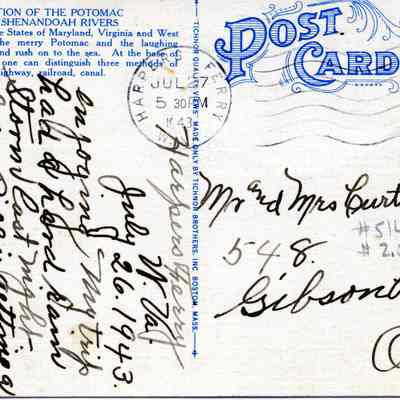 TION OF THE POTOMAC
SHENANDOAH RIVERS
e States of Maryland, Virginia and West
he merry Potomac and the laughing
nd rush on to the sea. At the base of
one can distinguish three methods of
ighway, railroad, canal.
TICHNOR QUALITY VIEWS. MADE ONLY BY TICHNOR BROTHERS, INC. BOSTON, MASS.
POST
CARD
HARPERS FERRY
JUL 7
5 30 PM
1943
W.
Harpers Ferry
W. Va.
July 26. 1943.
enjoying my trip
had a hard rain
storm last night
Mr and Mrs Curt
548.
Gibsonb
O
#
# 2.